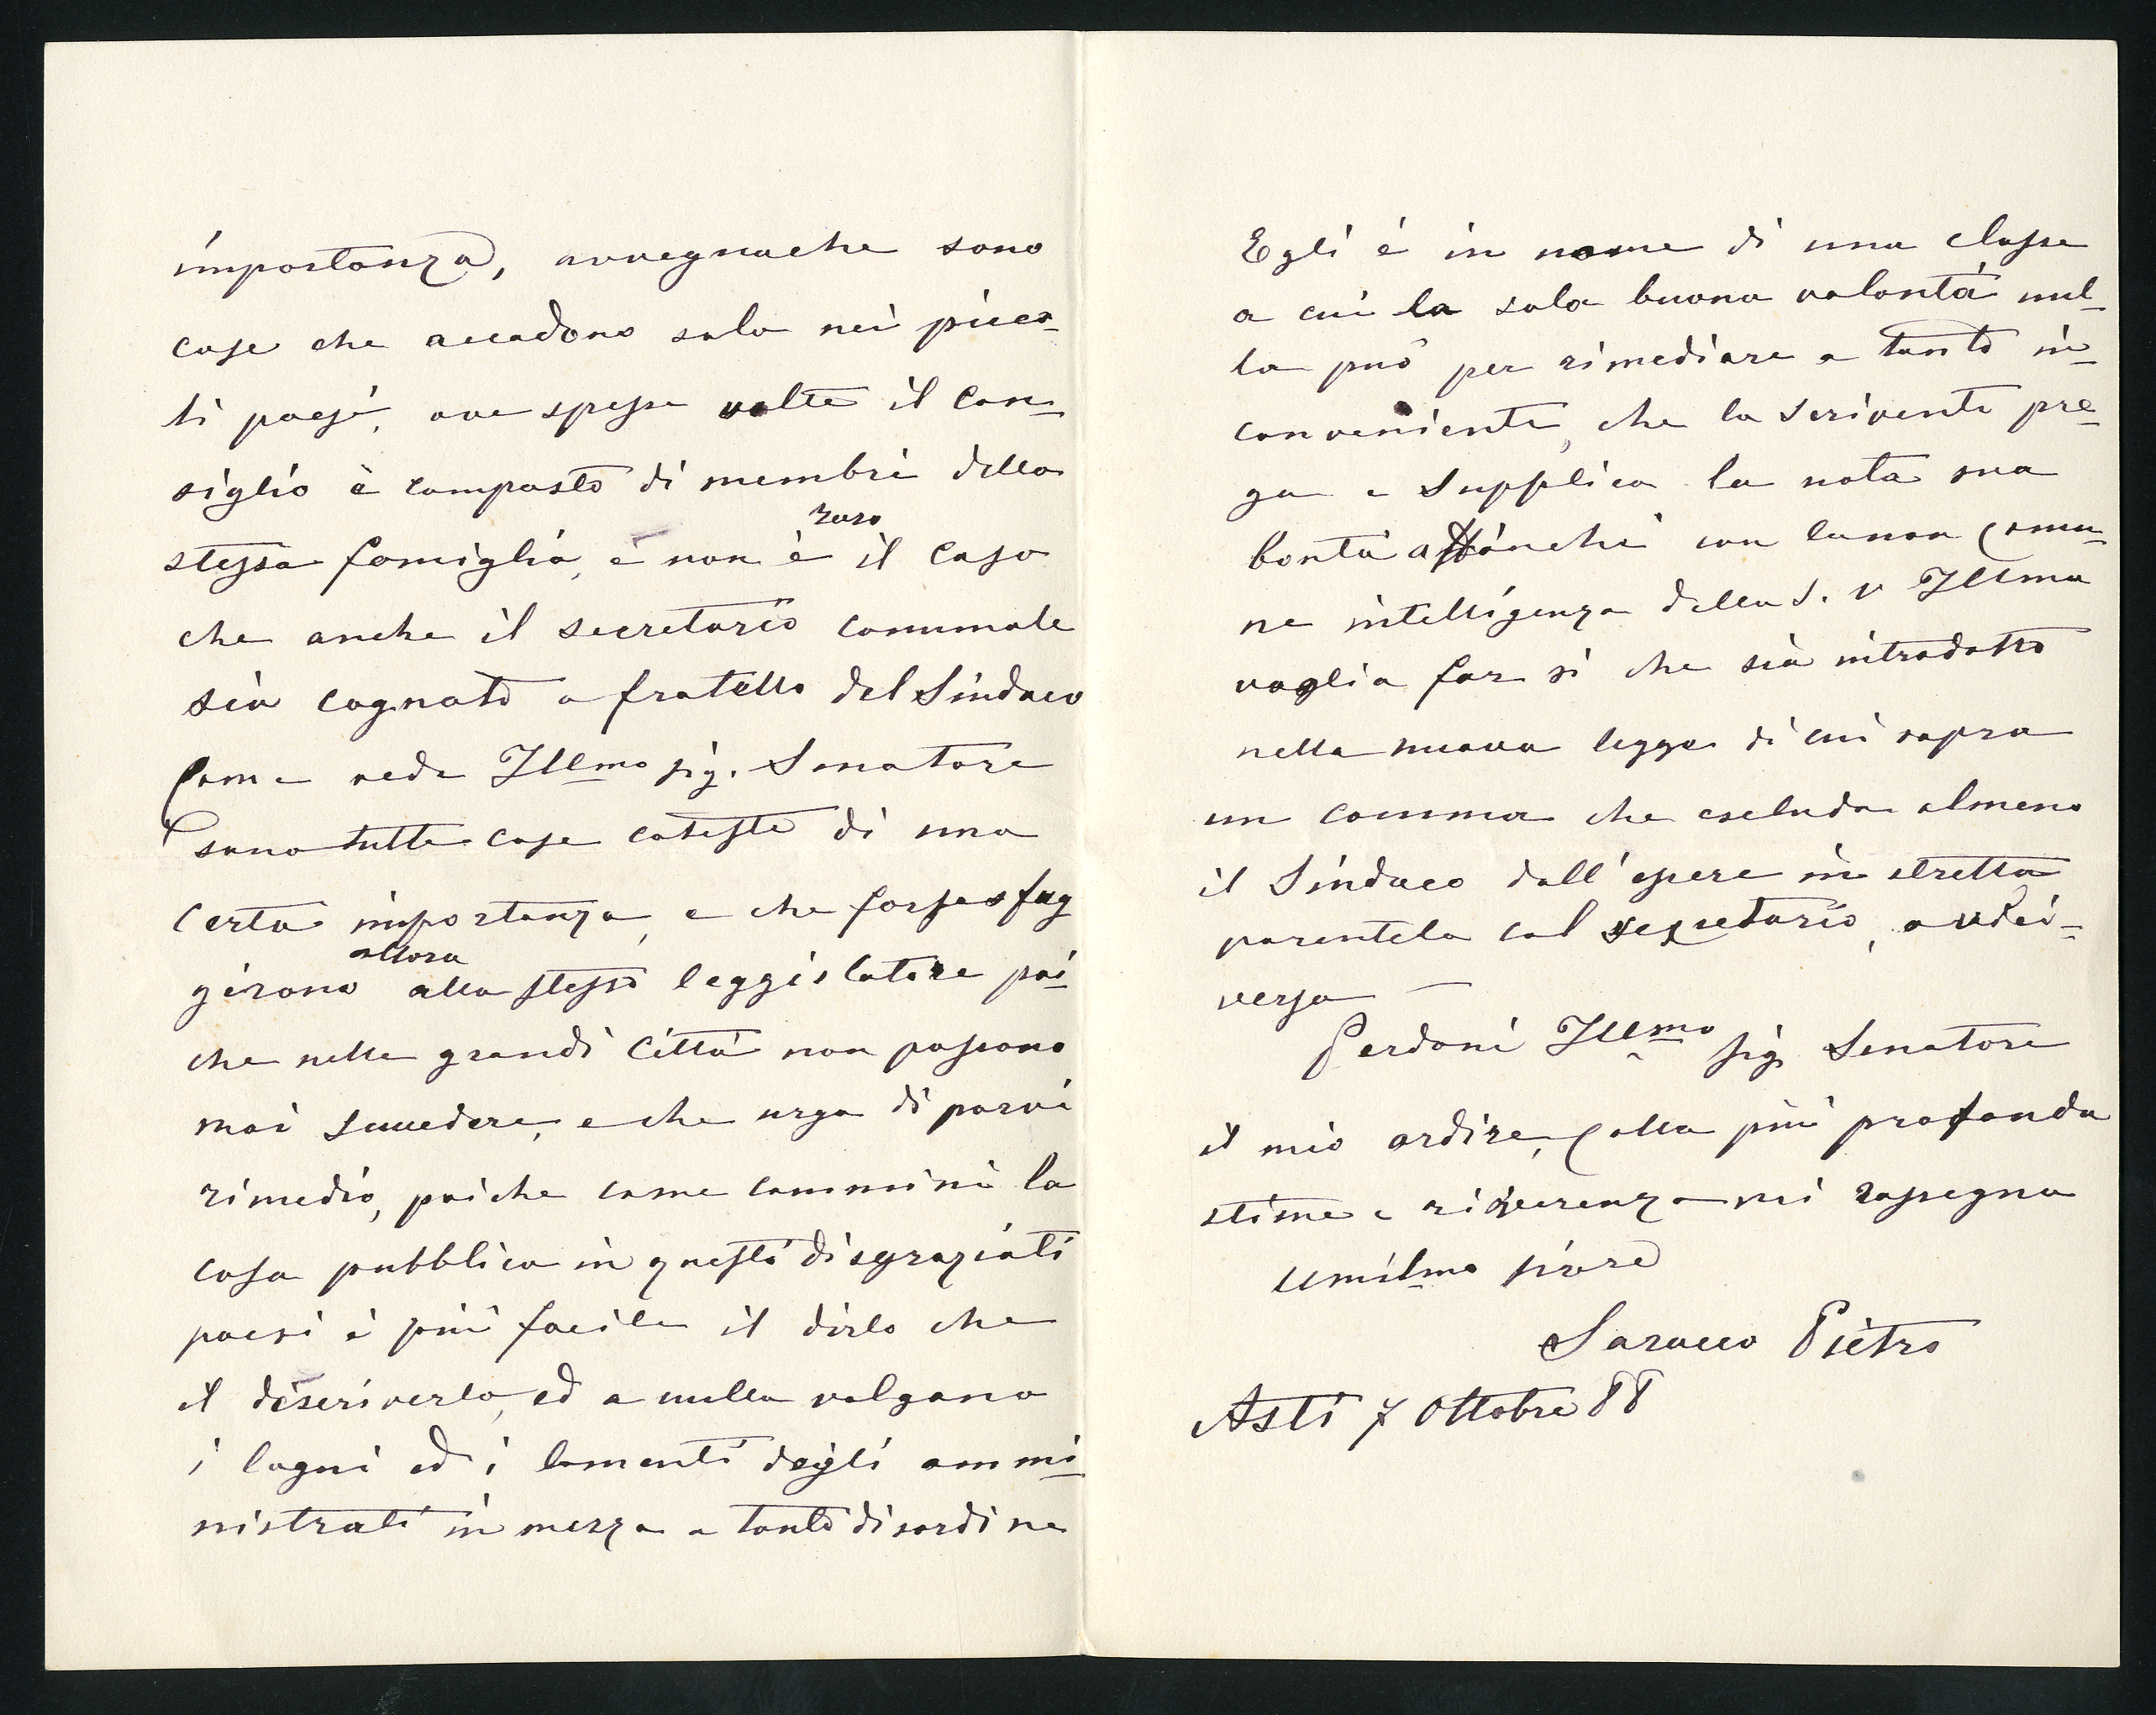 importanza, avvegnache sono
case che accadono solo nei picco-
li paesi, ove spesse volte il con-
siglio è composto di membri della
stessa famiglia, e non è raro il caso
che anche il secretario comunale
sia cognato o fratello del Sindaco
Come vede Illmo sig. Senatore
sono tutte cose coteste di una
certa importanza, e che forse sfug
girono allora allo stesso leggislatore poi-
che nelle grandi Città non possono
mai succedere, e che urge di porvi
rimedio, poiche come cammini la
cosa pubblica in questi disgraziati
paesi è più facile il dirlo che
il descriverlo, ed a nulla valgano
i lagni ed i lamenti degli ammi-
nistrati in mezzo a tanto disordine
Egli è in nome di una classe
a cui la sola buona volontà nul-
la può per rimediare a tanto in-
conveniente, che lo scrivente pre-
ga e supplica la nota sua
bontà affinchè con la non comu-
ne intelligenza della S. V Illma
voglia far si che sia introdotto
nella nuova legge di cui sopra
un comma che escluda almeno
il Sindaco dall'essere in stretta
parentela col segretario, o vicei-
versa —
Perdoni Illmo sig. Senatore
il mio ardire, colla più profonda
stima e riverenza mi rassegno
Umilmo
Saracco Pietro
Asti 7 Ottobre 88